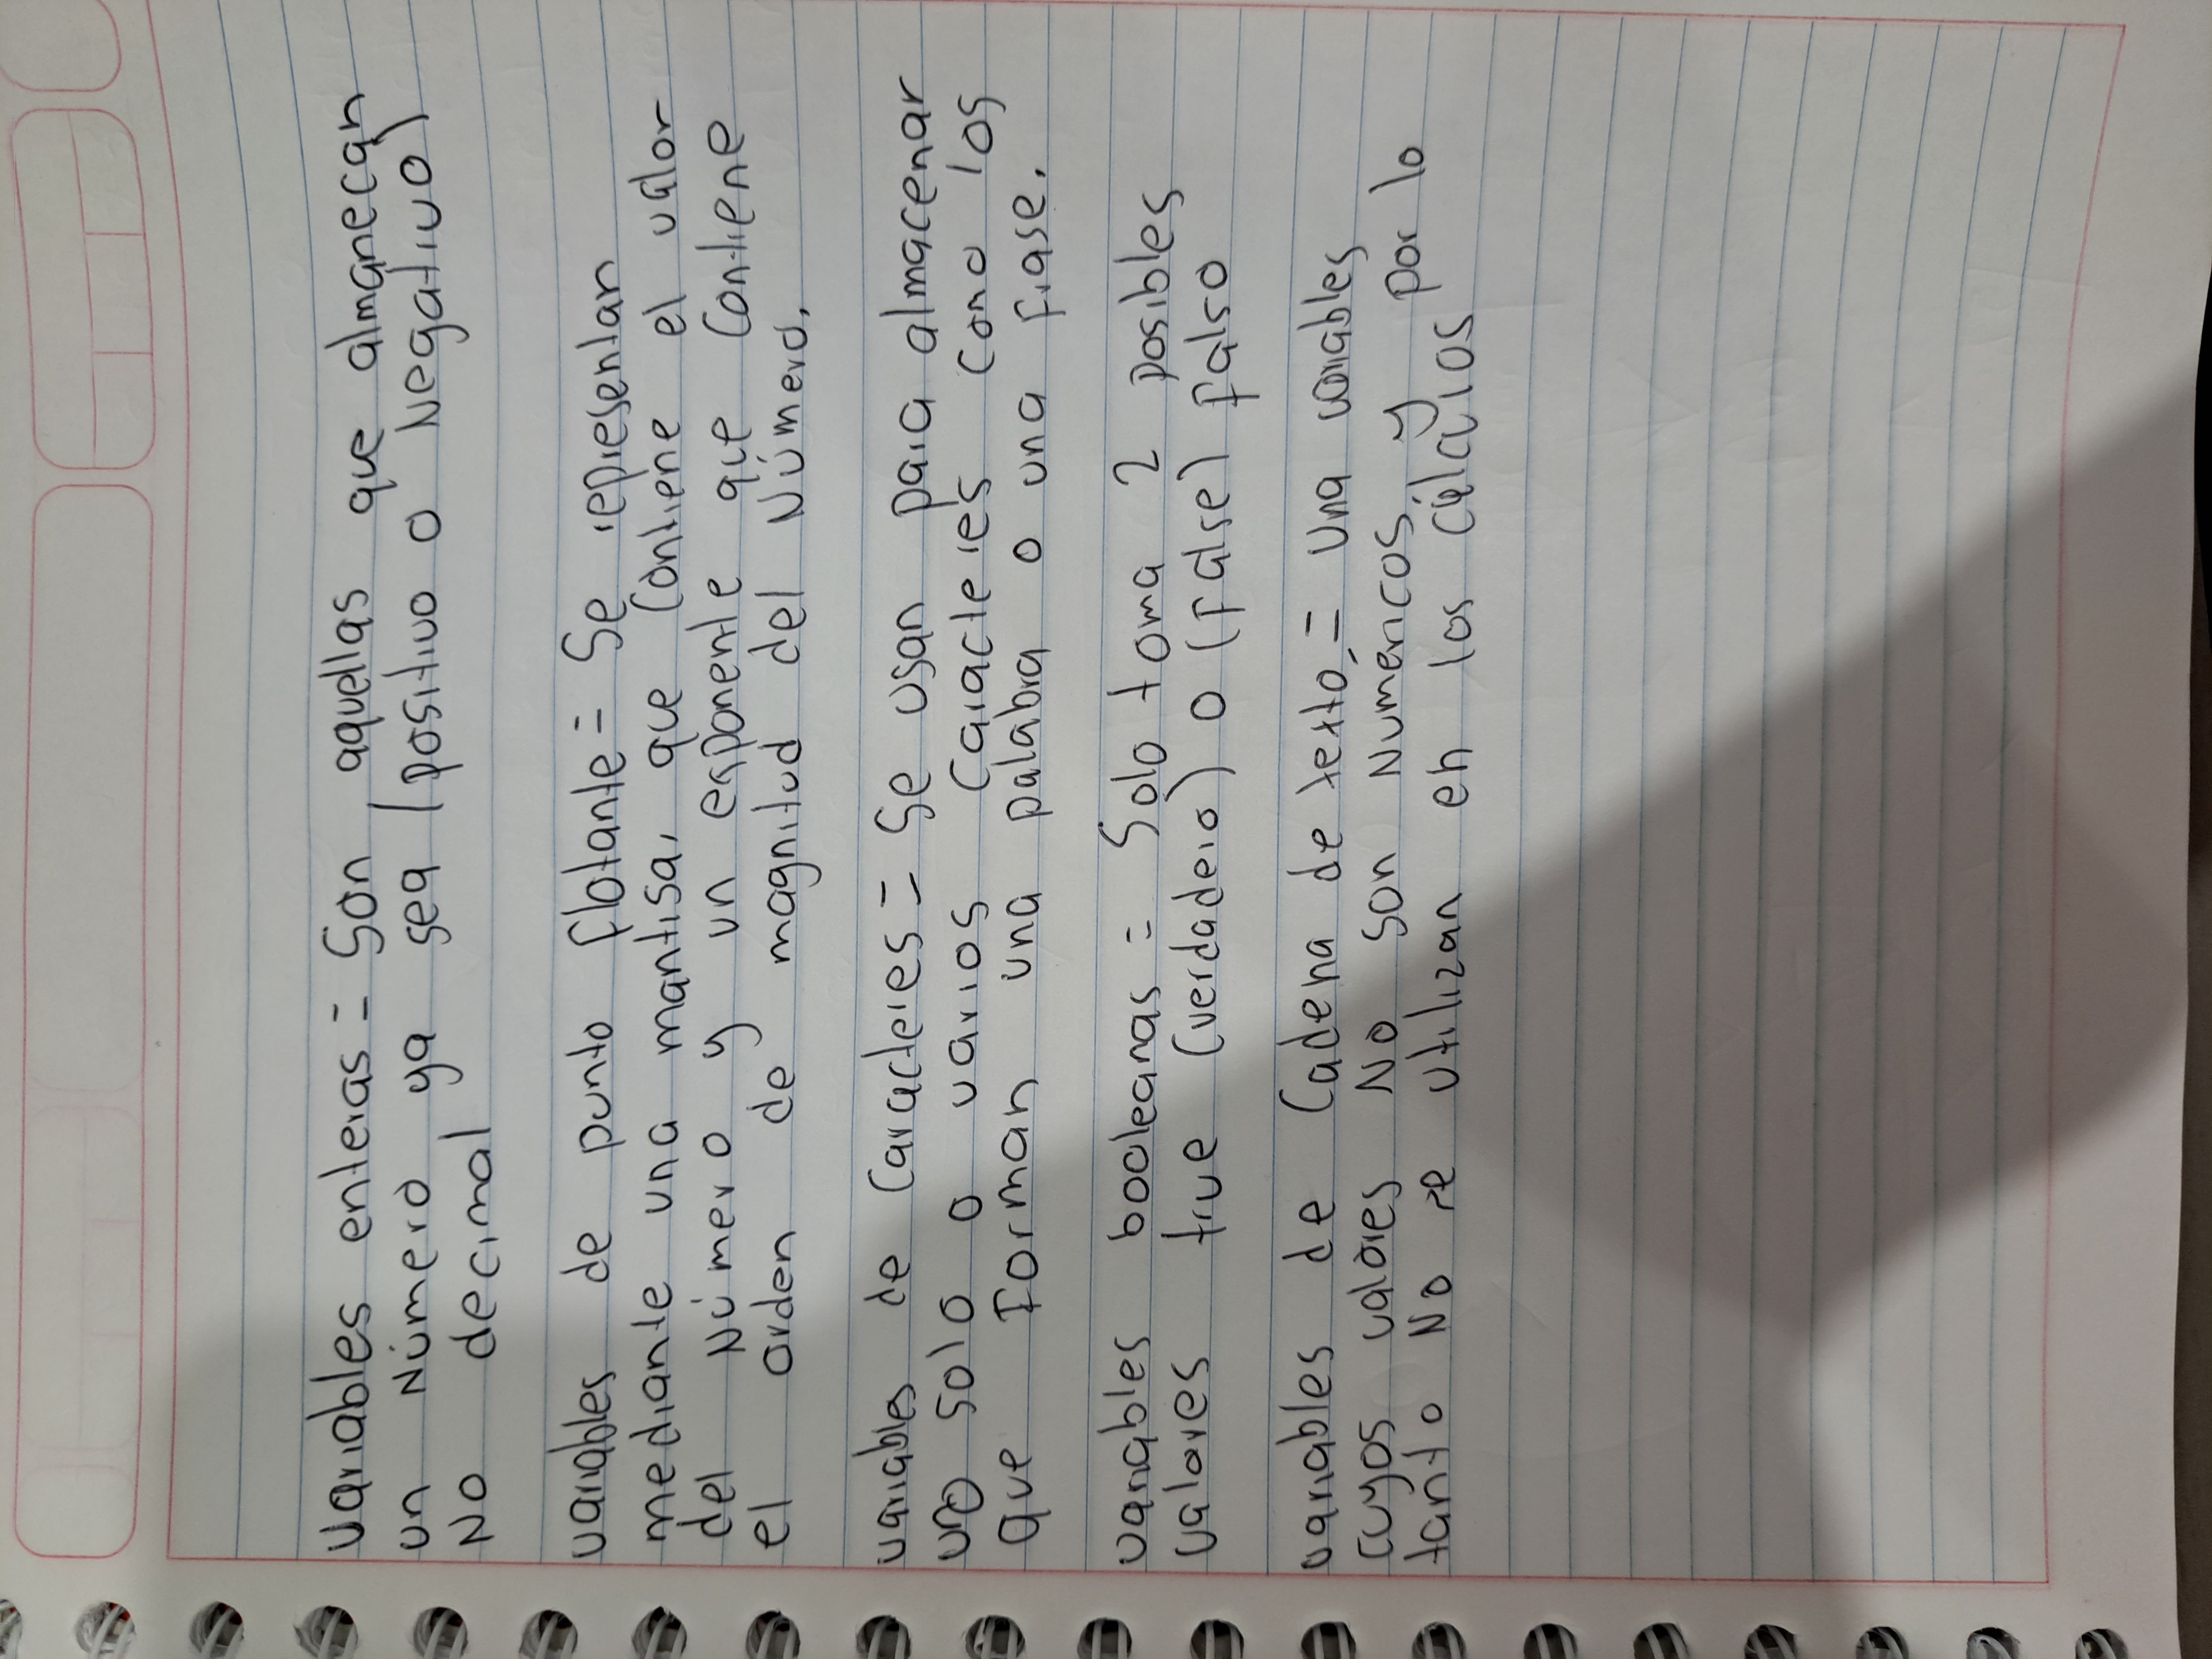 variables enteras = Son aquellas que almanecan
un Número ya sea (positivo o Negativo)
No decimal
variables de punto flotante = Se representan
mediante una mantisa, que contiene el valor
del Número y un esponente que contiene
el orden de magnitud del Número.
variables de caracteres = Se usan para almacenar
uno solo o varios caracteres como los
que forman una palabra o una frase.
variables booleanas = Solo toma 2 posibles
valores true (verdadero) o (false) falso
variables de cadena de texto = una variables
cuyos valores No son Numéricos y por lo
tanto No se utilizan en los cálculos